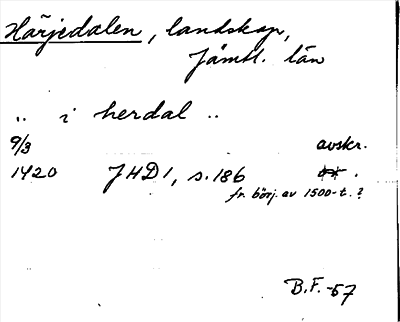 Härjedalen, landskap,
Jämtl. län
.. i herdal ..
9/3 avskr.
1420 JHD 1, s. 186
fr. börj. av 1500-t.?
B.F. -57